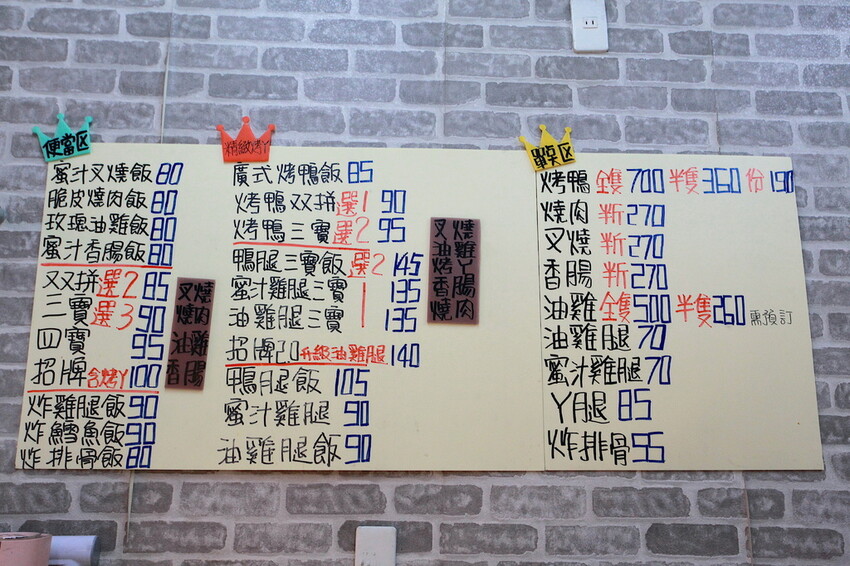 便當区
蜜汁叉燒飯 80
脆皮燒肉飯 80
玫瑰油雞飯 80
蜜汁香腸飯 80
双拼選2 85
三寶選3 90
四寶 95
招牌含烤丫 100
炸雞腿飯 90
炸鱈魚飯 90
炸排骨飯 80
叉燒
燒肉
油雞
香腸
精緻烤丫
廣式烤鴨飯 85
烤鴨双拼選1 90
烤鴨三寶選2 95
鴨腿三寶飯選2 145
蜜汁雞腿三寶1 135
油雞腿三寶1 135
招牌2.0升級油雞腿 140
鴨腿飯 105
蜜汁雞腿 90
油雞腿飯 90
叉燒
油雞
烤丫
香腸
燒肉
單点区
烤鴨 全隻700 半隻360 份190
燒肉 斤270
叉燒 斤270
香腸 斤270
油雞 全隻500 半隻260 需預訂
油雞腿 70
蜜汁雞腿 70
丫腿 85
炸排骨 55